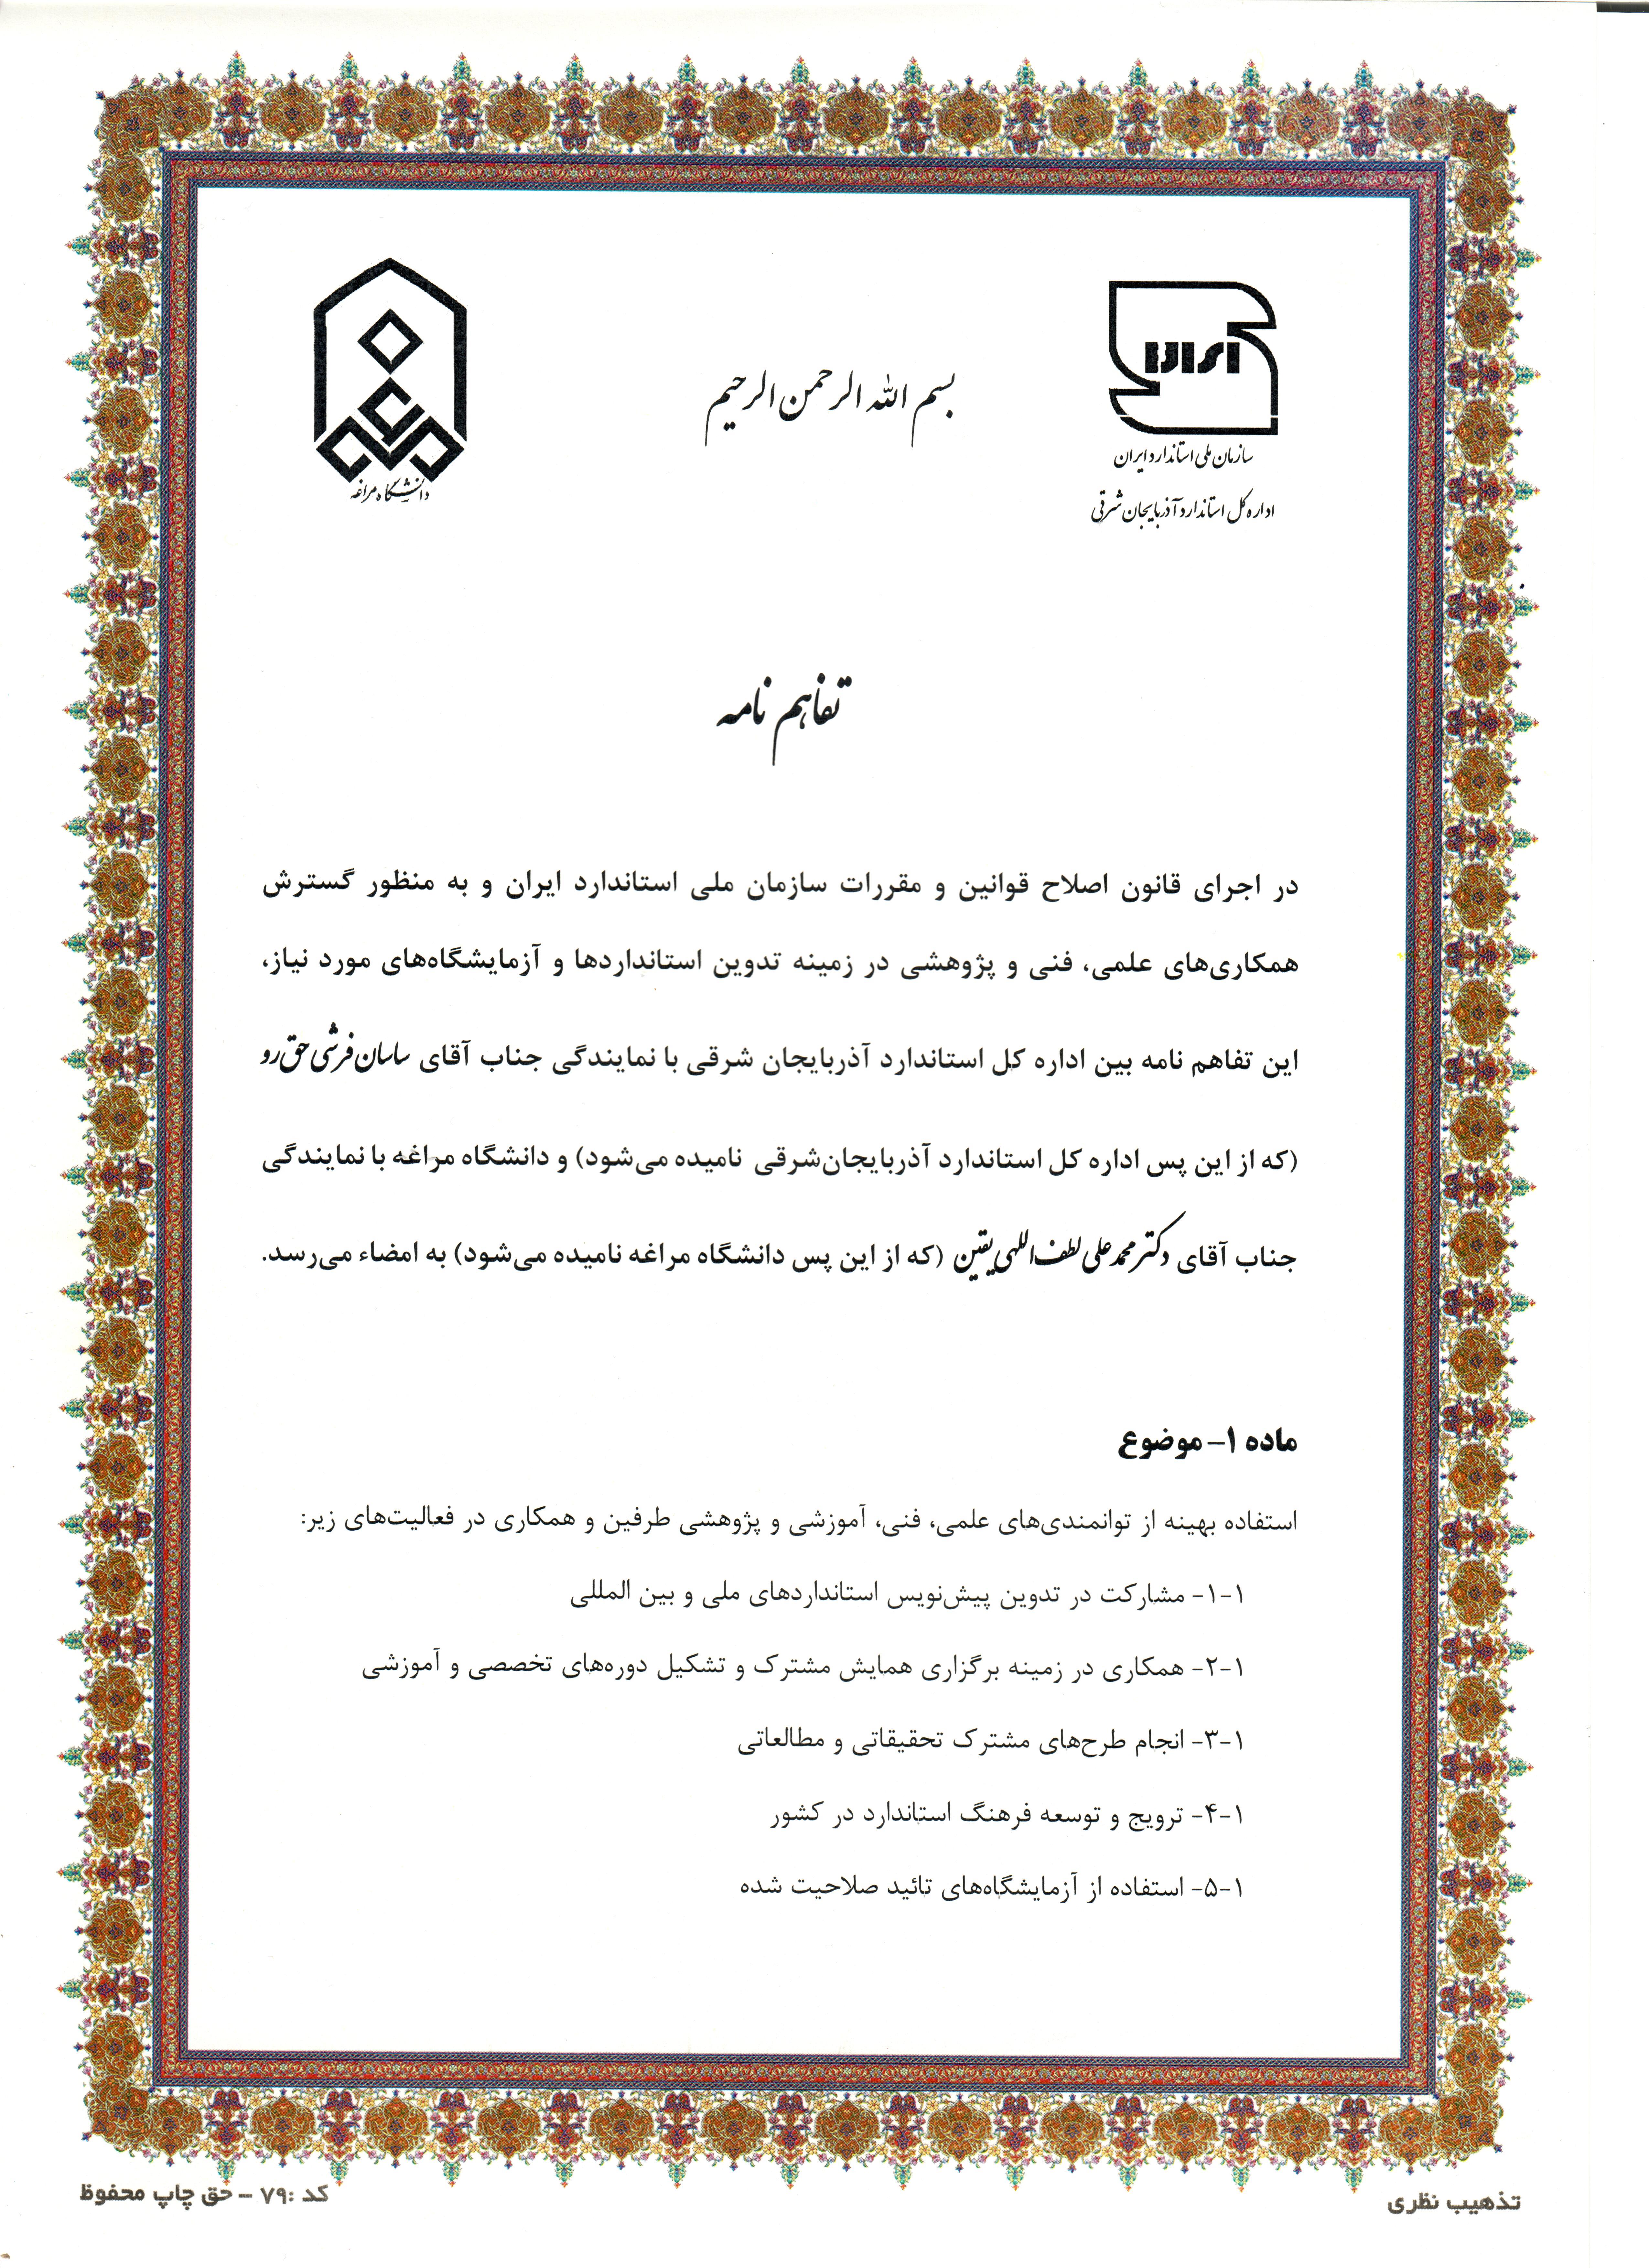 بسم الله الرحمن الرحیم
ایران
سازمان ملی استاندارد ایران
اداره کل استاندارد آذربایجان شرقی
دانشگاه مراغه
تفاهم نامه
در اجرای قانون اصلاح قوانین و مقررات سازمان ملی استاندارد ایران و به منظور گسترش
همکاری‌های علمی، فنی و پژوهشی در زمینه تدوین استانداردها و آزمایشگاه‌های مورد نیاز،
این تفاهم نامه بین اداره کل استاندارد آذربایجان شرقی با نمایندگی جناب آقای ساسان فرشی حق‌رو
(که از این پس اداره کل استاندارد آذربایجان‌شرقی نامیده می‌شود) و دانشگاه مراغه با نمایندگی
جناب آقای دکتر محمد علی لطف‌اللهی یقین (که از این پس دانشگاه مراغه نامیده می‌شود) به امضاء می‌رسد.
ماده ۱- موضوع
استفاده بهینه از توانمندی‌های علمی، فنی، آموزشی و پژوهشی طرفین و همکاری در فعالیت‌های زیر:
۱-۱- مشارکت در تدوین پیش‌نویس استانداردهای ملی و بین المللی
۱-۲- همکاری در زمینه برگزاری همایش مشترک و تشکیل دوره‌های تخصصی و آموزشی
۱-۳- انجام طرح‌های مشترک تحقیقاتی و مطالعاتی
۱-۴- ترویج و توسعه فرهنگ استاندارد در کشور
۱-۵- استفاده از آزمایشگاه‌های تائید صلاحیت شده
تذهیب نظری
کد :۷۹ - حق چاپ محفوظ